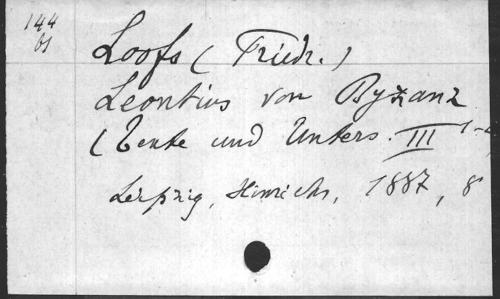 144
bs
Loofs (Friedr.)
Leontius von Byzanz
(Texte und Unters. III 1-2
Leipzig, Hinrichs, 1887, 8